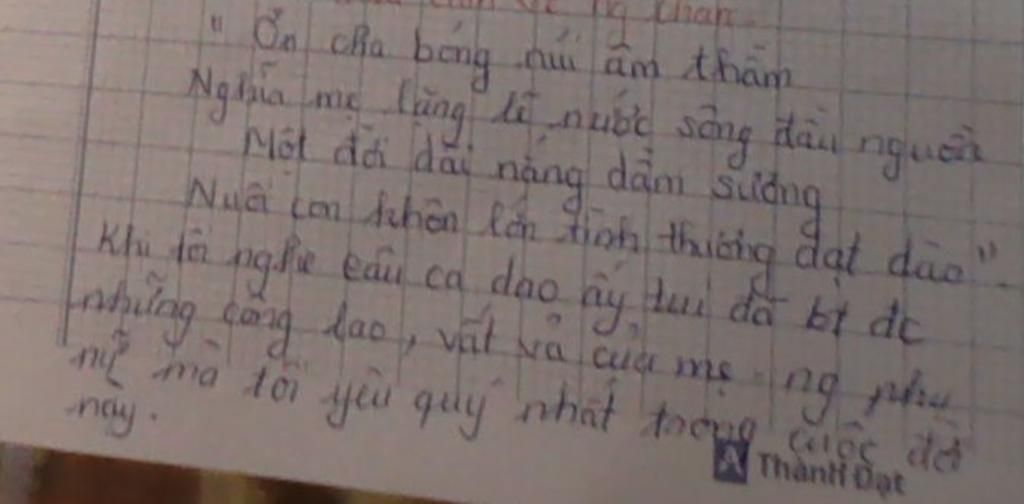 thân
" Ơn cha bóng núi âm thầm
Nghĩa mẹ lặng lẽ nước sông đầu nguồn
Một đời dãi nắng dầm sương
Nuôi con khôn lớn tình thương dạt dào"
Khi tôi nghe câu ca dao ấy tui đã bt đc
những công lao, vất vả của mẹ ng phụ
nữ mà tôi yêu quý nhất trong cuộc đời
này.
A Thành Đạt